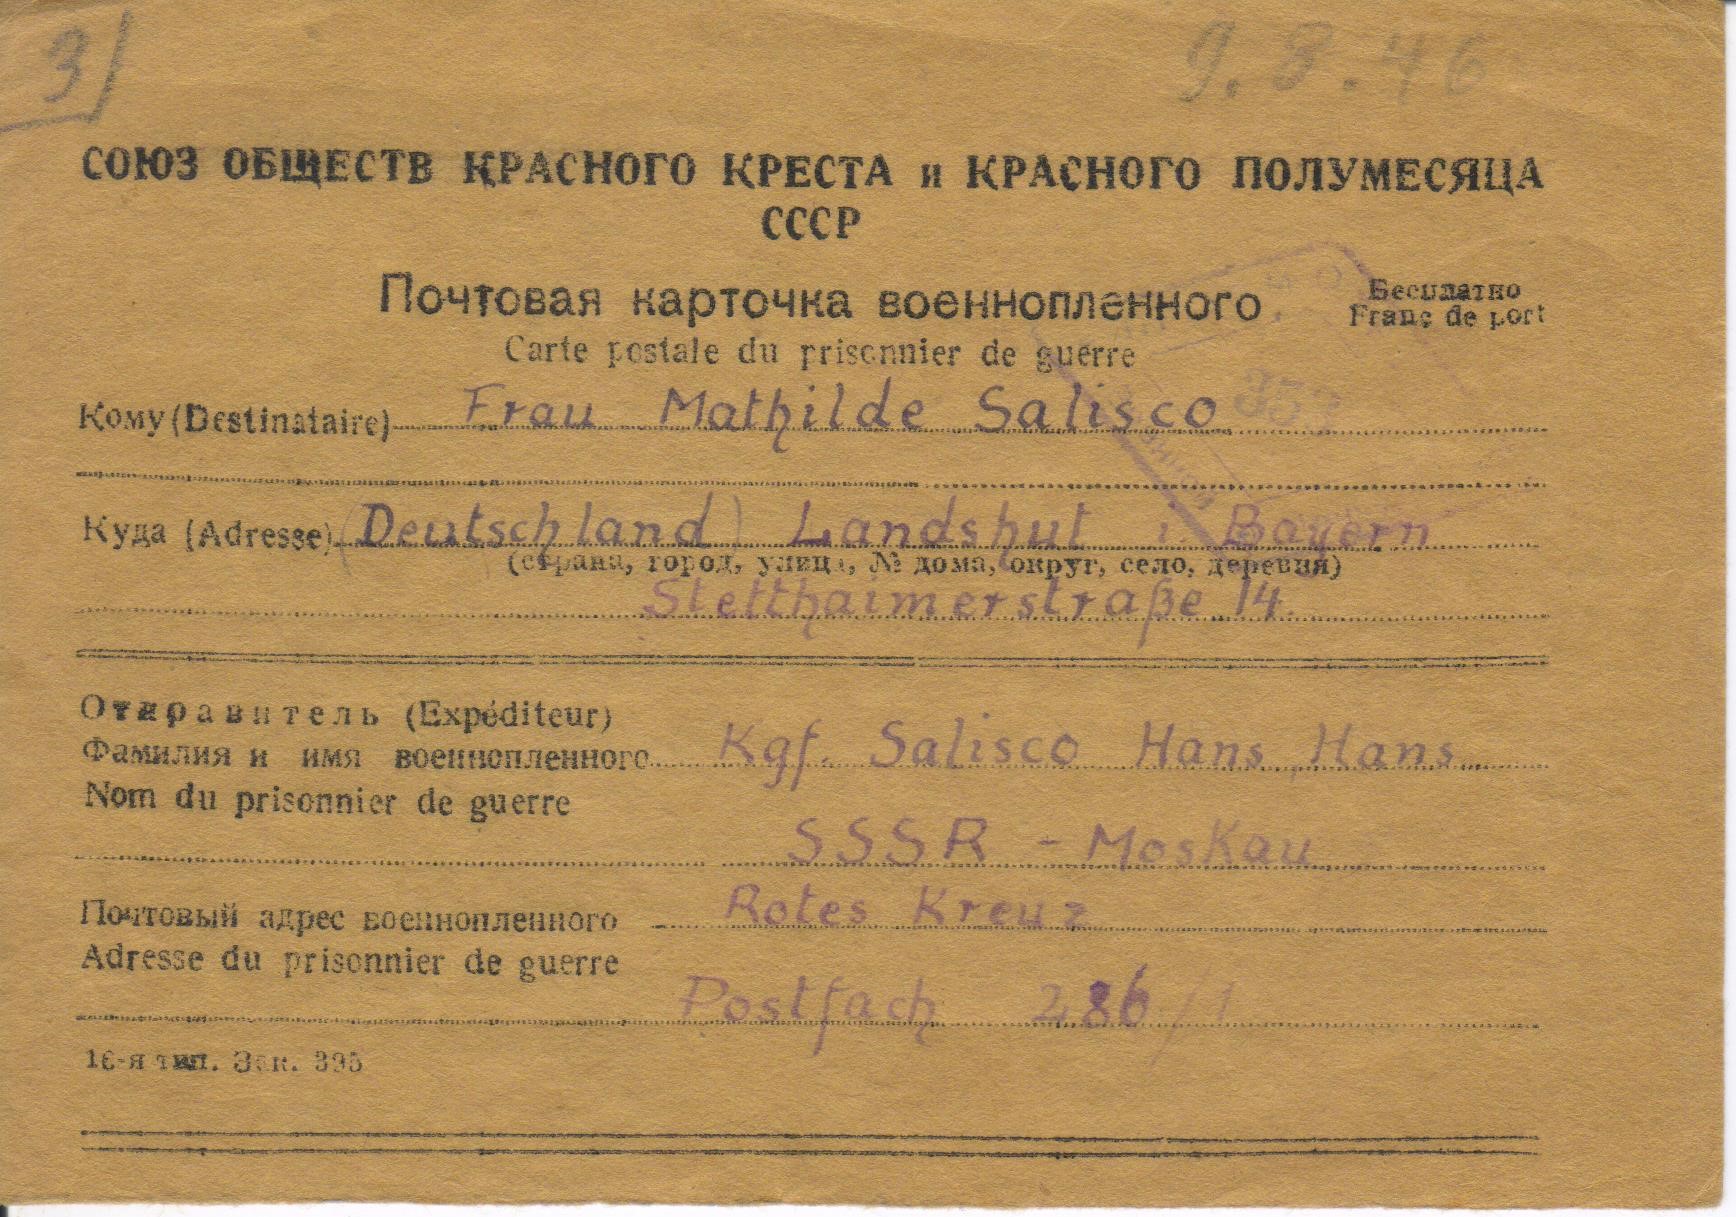 3
9.8.46
СОЮЗ ОБЩЕСТВ КРАСНОГО КРЕСТА и КРАСНОГО ПОЛУМЕСЯЦА
СССР
Почтовая карточка военнопленного
Бесплатно
Franc de port
Carte postale du prisonnier de guerre
Кому (Destinataire) Frau Mathilde Salisco
Куда (Adresse) (Deutschland) Landshut i. Bayern
(страна, город, улица, № дома, округ, село, деревня)
Stetthaimerstraße 14.
Отправитель (Expéditeur)
Фамилия и имя военнопленного Kgf. Salisco Hans, Hans
Nom du prisonnier de guerre
SSSR - Moskau
Почтовый адрес военнопленного Rotes Kreuz
Adresse du prisonnier de guerre
Postfach 286/1
16-я тип. Зак. 395